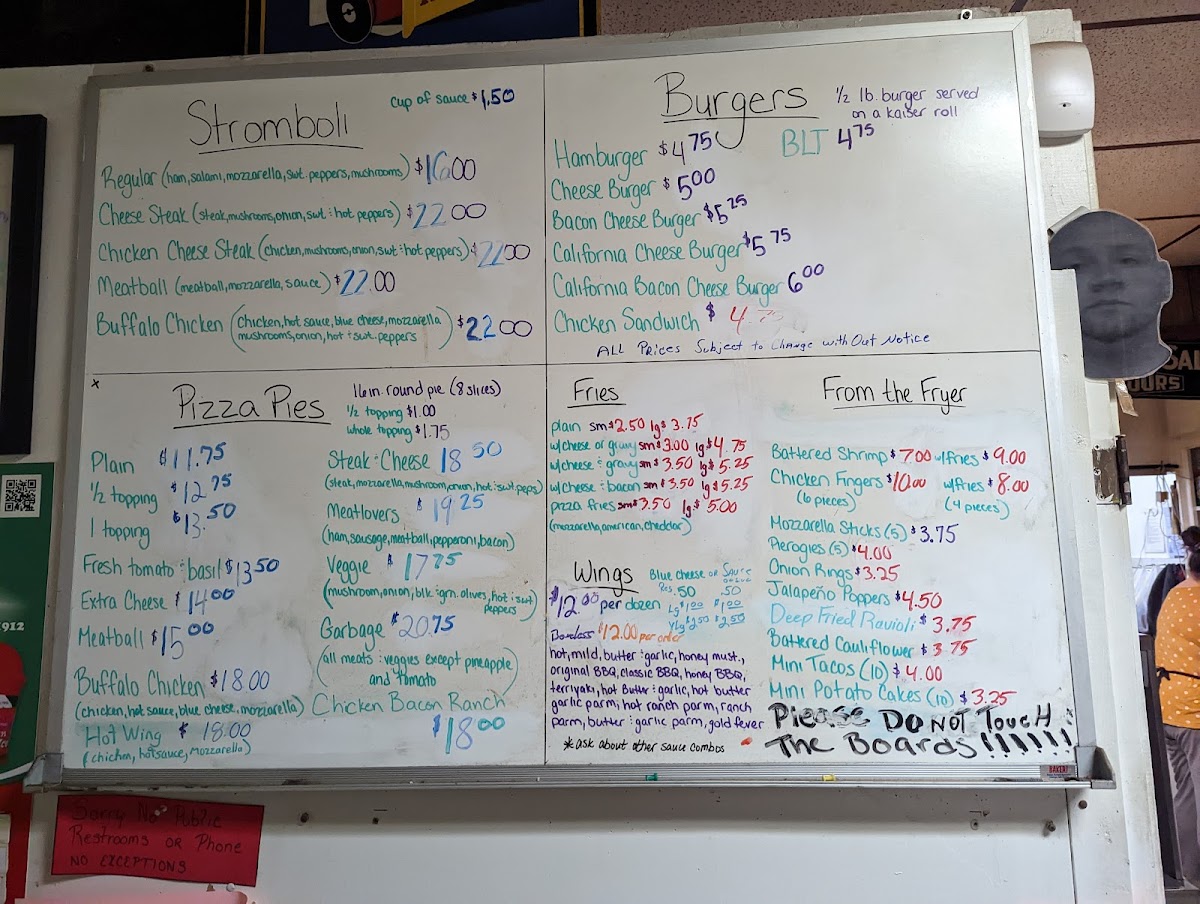 Stromboli
cup of sauce $1.50
Regular (ham, salami, mozzarella, swt. peppers, mushrooms) $16.00
Cheese Steak (steak, mushrooms, onion, swt : hot peppers) $22.00
Chicken Cheese Steak (chicken, mushrooms, onion, swt : hot peppers) $22.00
Meatball (meatball, mozzarella, sauce) $22.00
Buffalo Chicken (chicken, hot sauce, blue cheese, mozzarella
mushrooms, onion, hot : swt. peppers) $22.00
Burgers
1/2 lb. burger served
on a kaiser roll
Hamburger $4.75
BLT 4.75
Cheese Burger $5.00
Bacon Cheese Burger $5.25
California Cheese Burger $5.75
California Bacon Cheese Burger 6.00
Chicken Sandwich $4.75
ALL Prices Subject to Change with Out Notice
Pizza Pies
16 in. round pie (8 slices)
1/2 topping $1.00
whole topping $1.75
Plain $11.75
1/2 topping $12.75
1 topping $13.50
Fresh tomato : basil $13.50
Extra Cheese $14.00
Meatball $15.00
Buffalo Chicken $18.00
(chicken, hot sauce, blue cheese, mozzarella)
Hot Wing $18.00
(chicken, hotsauce, Mozzarella)
Steak : Cheese 18.50
(steak, mozzarella, mushroom, onion, hot : swt. peps)
Meatlovers $19.25
(ham, sausage, meatball, pepperoni, bacon)
Veggie $17.75
(mushroom, onion, blk : grn. olives, hot : swt
peppers)
Garbage $20.75
(all meats : veggies except pineapple
and tomato)
Chicken Bacon Ranch
$18.00
Fries
plain sm$2.50 lg$3.75
w/cheese or gravy sm$3.00 lg$4.75
w/cheese : gravy sm$3.50 lg$5.25
w/cheese : bacon sm$3.50 lg$5.25
pizza fries sm$3.50 lg$5.00
(mozzarella, american, cheddar)
Wings
$12.00 per dozen
Boneless $12.00 per order
Blue cheese or Sauce
.50 .50
Lg $1.00 $1.00
XLg $2.50 $2.50
hot, mild, butter : garlic, honey must.,
original BBQ, classic BBQ, honey BBQ,
terriyaki, hot Butter : garlic, hot butter
garlic parm, hot ranch parm, ranch
parm, butter : garlic parm, gold fever
*ask about other sauce combos
From the Fryer
Battered Shrimp $7.00 w/fries $9.00
Chicken Fingers $10.00 w/fries $8.00
(6 pieces) (4 pieces)
Mozzarella Sticks (5) $3.75
Pierogies (5) $4.00
Onion Rings $3.25
Jalapeño Poppers $4.50
Deep Fried Ravioli $3.75
Battered Cauliflower $3.75
Mini Tacos (10) $4.00
Mini Potato Cakes (10) $3.25
Please DO NOT Touch
The Boards!!!!!!
Sorry No Public
Restrooms or Phone
NO EXCEPTIONS
1912
OURS